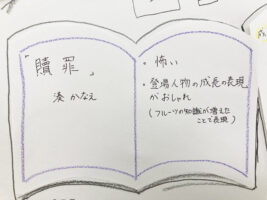 「贖罪」
湊 かなえ
・怖い
・登場人物の成長の表現
がおしゃれ
(フルーツの知識が増えた
ことで表現)